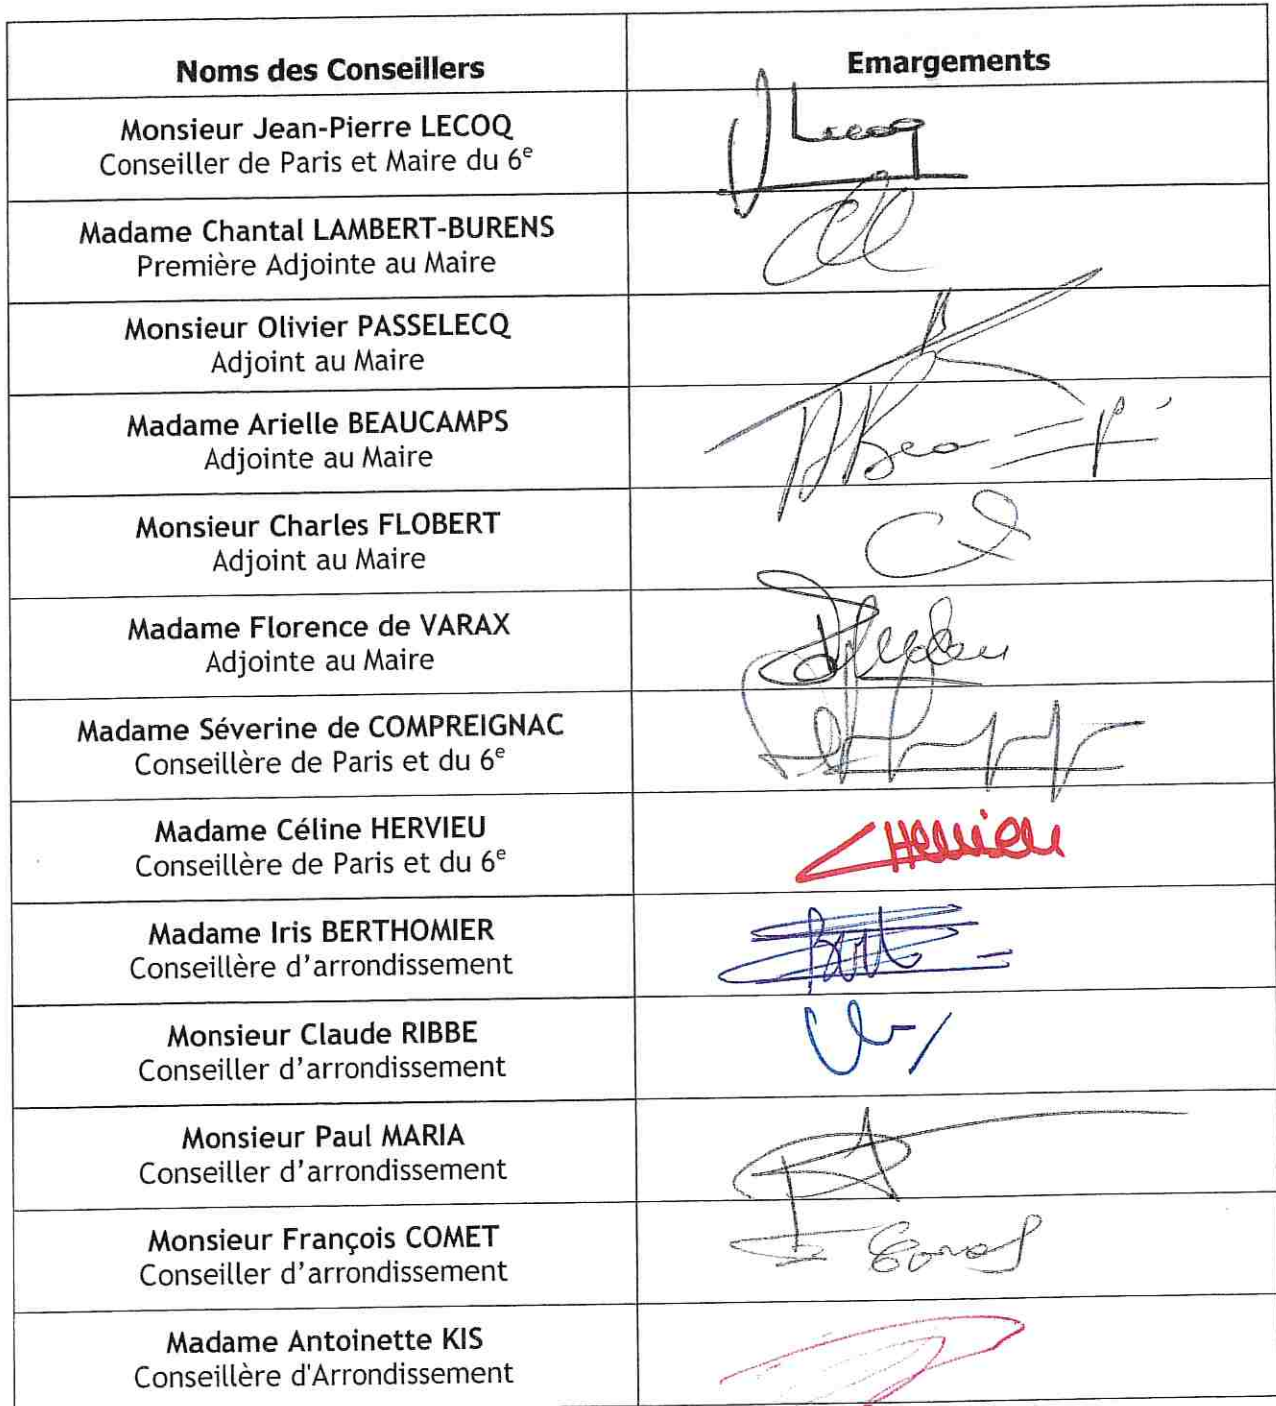 Noms des Conseillers
Emargements
Monsieur Jean-Pierre LECOQ
Conseiller de Paris et Maire du 6e
Lecoq
Madame Chantal LAMBERT-BURENS
Première Adjointe au Maire
Monsieur Olivier PASSELECQ
Adjoint au Maire
Madame Arielle BEAUCAMPS
Adjointe au Maire
Monsieur Charles FLOBERT
Adjoint au Maire
Madame Florence de VARAX
Adjointe au Maire
Madame Séverine de COMPREIGNAC
Conseillère de Paris et du 6e
Madame Céline HERVIEU
Conseillère de Paris et du 6e
CHervieu
Madame Iris BERTHOMIER
Conseillère d'arrondissement
Monsieur Claude RIBBE
Conseiller d'arrondissement
Monsieur Paul MARIA
Conseiller d'arrondissement
Monsieur François COMET
Conseiller d'arrondissement
Madame Antoinette KIS
Conseillère d'Arrondissement